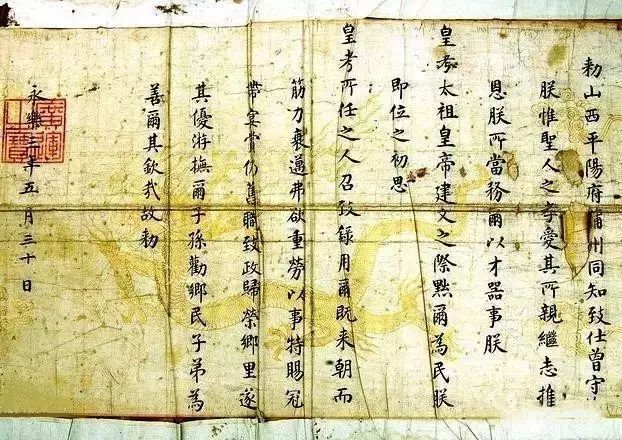 勑山西平陽府蒲州同知致仕曾守
朕惟聖人之孝愛其所親繼志推
恩朕所當務爾以才器事朕
皇考太祖皇帝建文之際黜爾為民朕
即位之初思
皇考所任之人召致錄用爾既来朝而
筋力衰邁弗欲重勞以事特賜冠
帶宴賞仍舊職致政歸榮鄉里遂
其優游撫爾子孫勸鄉民子弟為
善爾其欽哉故勑
永樂三年五月三十日